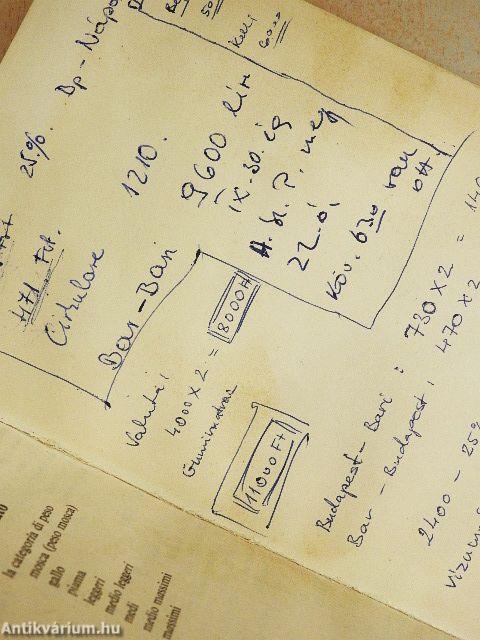 25%. Bp-Nápo
Kelli
6000
50
471 Frt.
Cirkulare
1210.
Bar-Bari
9600 lira
IX. 30. ig
A. H. P. meg
22.ó.
Köv. 630 van
ott!
Valuta:
4000 x 2 = 8000 Ft
Gumimatrac
11000 Ft
Budapest-Bari: 730 x 2 = 146
Bar-Budapest: 470 x 2
2400 - 25%
Vízum
la categoria di peso
mosca (peso mosca)
gallo
piuma
leggeri
medio leggeri
medi
medio massimi
massimi
Antikvárium.hu